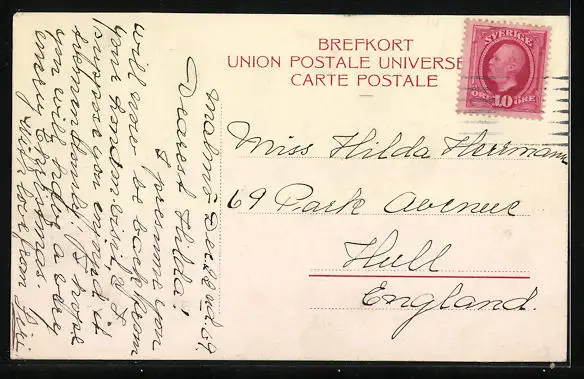 BREFKORT
UNION POSTALE UNIVERSE
CARTE POSTALE
SVERIGE
ÖRE 10 ÖRE
Miss Hilda Herrmann
69 Park Avenue
Hull
England.
Malmö
Dearest Hilda!
I presume you
will now be back from
your London visit, &
suppose you enjoyed it
tremendously. I hope
you will have a very
merry Christmas.
With love from